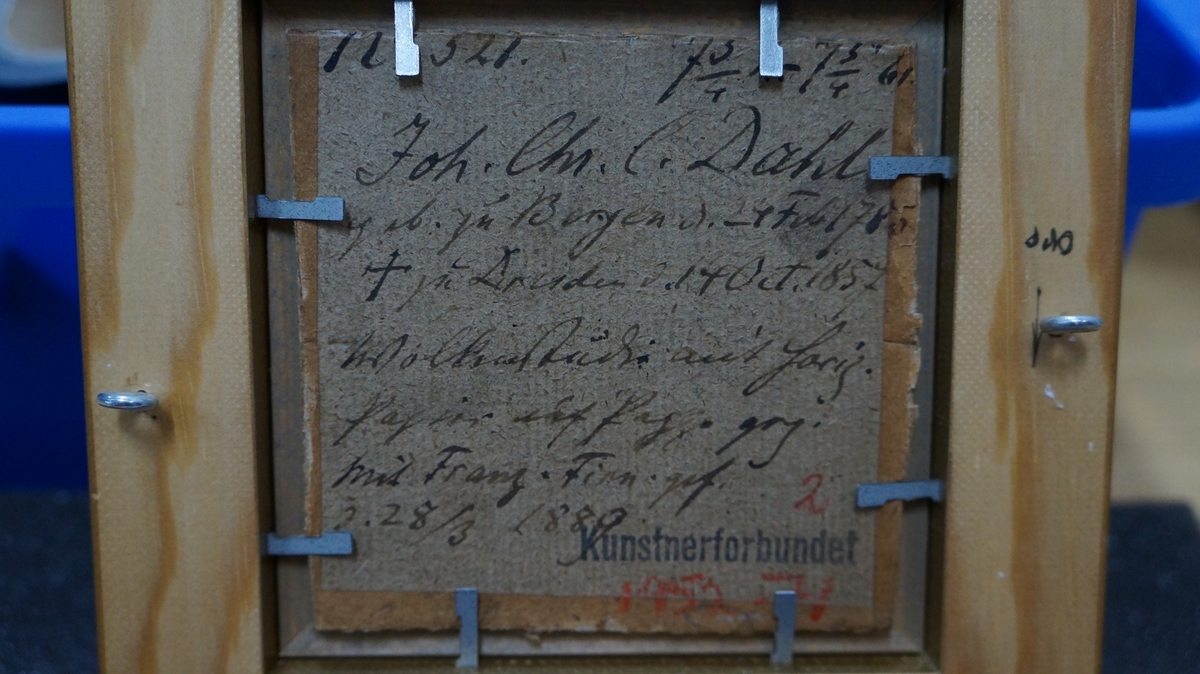 N 521.
Joh. Chr. C. Dahl
geb. zu Bergen d. 24 Feb 1785
† zu Dresden d. 14 Oct. 1857
Wolkenstudie auf
Papier auf Pappe
mit Franz. Firn. gef.
d. 28/3 1880
2
Kunstnerforbundet